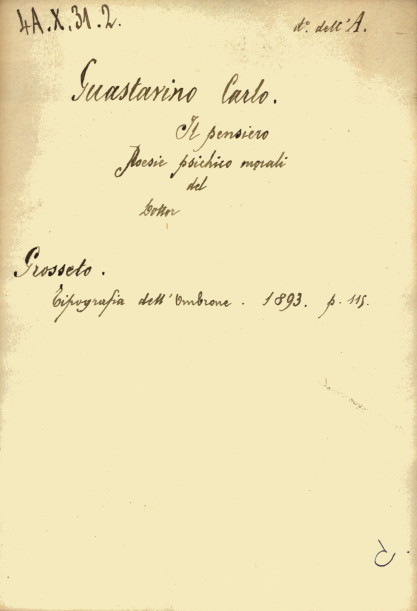 4A.X.31.2.
d°. dell'A.
Guastavino Carlo.
Il pensiero
Poesie psichico morali
del
Dottor
Grosseto.
Tipografia dell'Ombrone. 1893. p. 115.